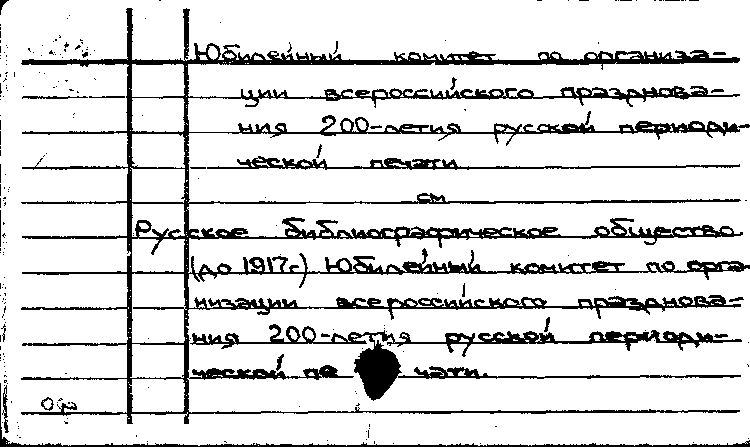 Юбилейный комитет по организа-
ции всероссийского празднова-
ния 200-летия русской периоди-
ческой печати
см
Русское библиографическое общество
(до 1917г.) Юбилейный комитет по орга-
низации всероссийского празднова-
ния 200-летия русской периоди-
ческой пе чати.